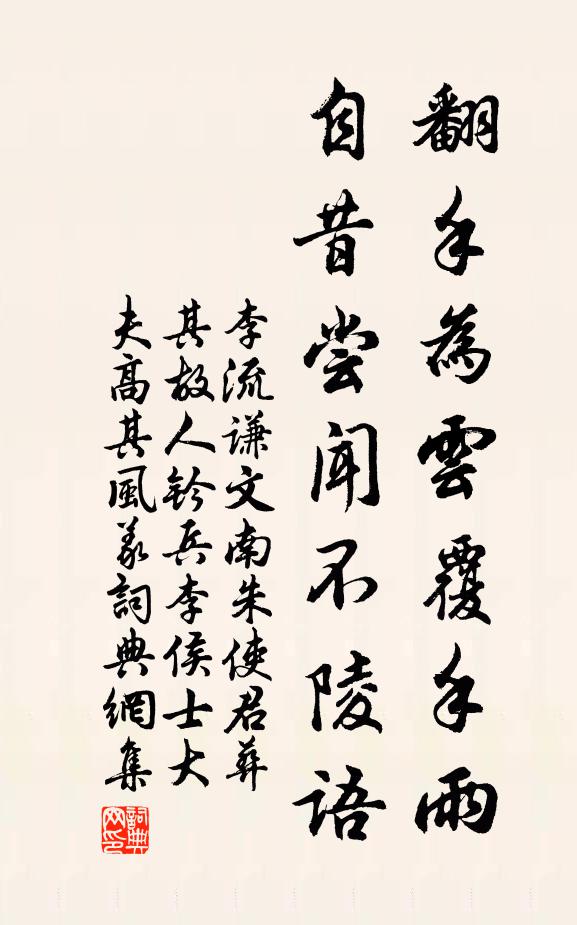 翻手為雲覆手雨
自昔尝聞不陵語
李流谦文南朱使君葬
其故人鈐兵李侯士大
夫高其風義詞典網集
詞典网印